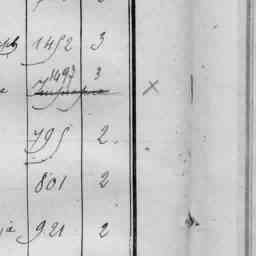 1452 3
1497 3
795 2
801 2
921 2